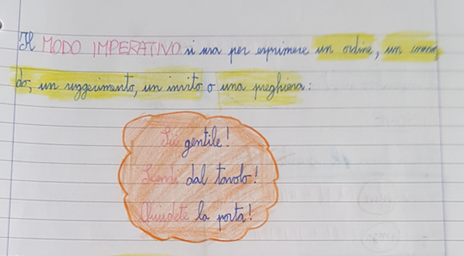 Il MODO IMPERATIVO si usa per esprimere un ordine, un coman
do, un suggerimento, un invito o una preghiera:
Sii gentile!
Scendi dal tavolo!
Chiudete la porta!